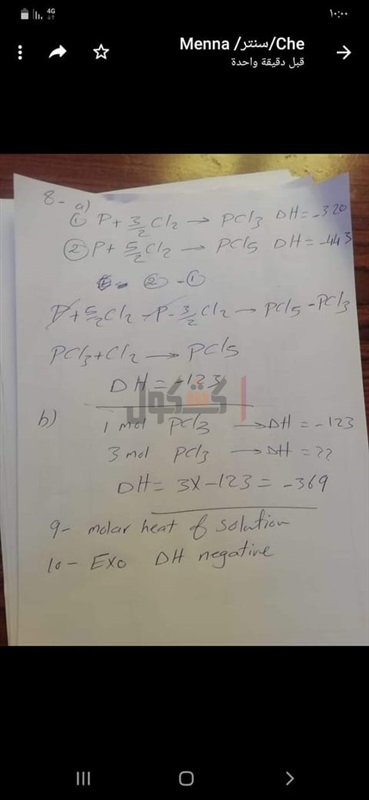 4G
١٠:٠٠
Menna /سنتر/Che
قبل دقيقة واحدة
8- a)
① P + 3/2 Cl2 → PCl3 DH = -320
② P + 5/2 Cl2 → PCl5 DH = -443
② - ①
P + 5/2 Cl2 - P - 3/2 Cl2 → PCl5 - PCl3
PCl3 + Cl2 → PCl5
DH = -123
كشكول
b) 1 mol PCl3 → DH = -123
3 mol PCl3 → DH = ??
DH = 3X -123 = -369
9- molar heat of solution
10- Exo DH negative